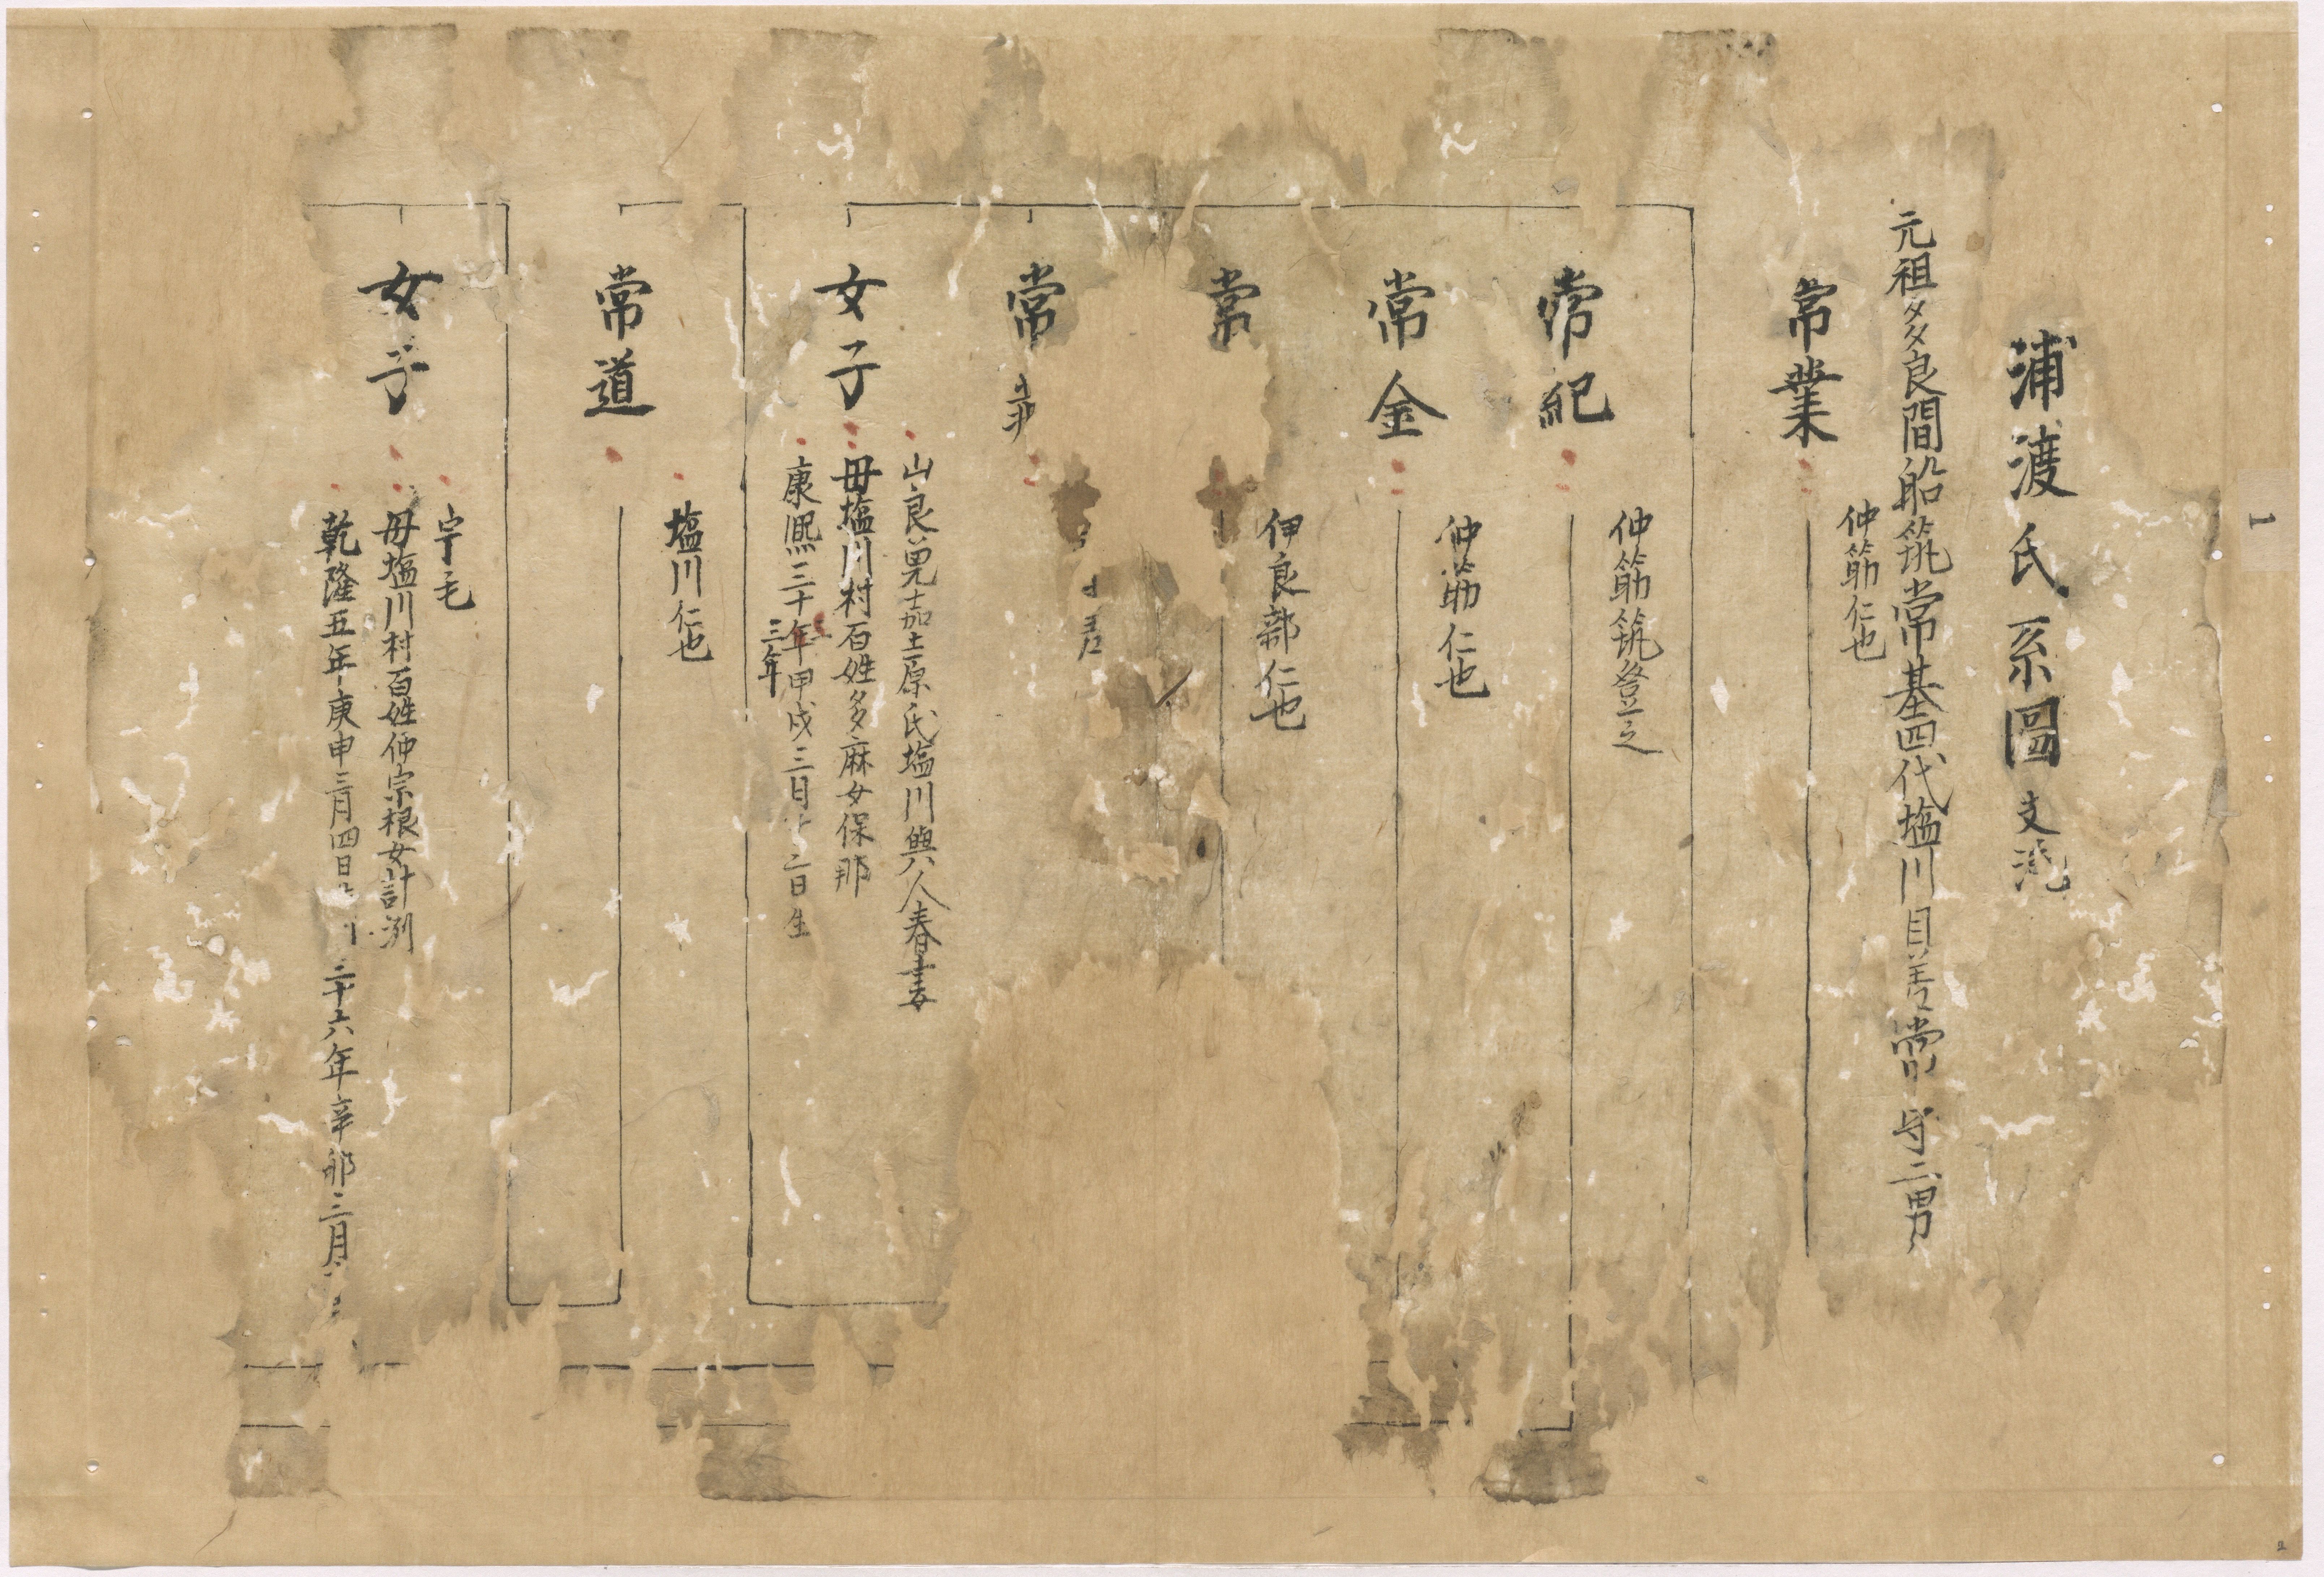 浦渡氏系圖 支流
元祖多良間船筑常基四代塩川目差常 守二男
常業
仲筋仁也
常紀
仲筋筑登之
常金
仲筋仁也
常
伊良部仁也
常
女子
山良兒嘉土原氏塩川與人春妻
毋塩川村百姓多麻女保那
康熙三十年甲戌三月 二日生
三年
常道
塩川仁也
女子
宇毛
毋塩川村百姓仲宗根女計渕
乾隆五年庚申三月四日 三十六年辛卯三月
1
2